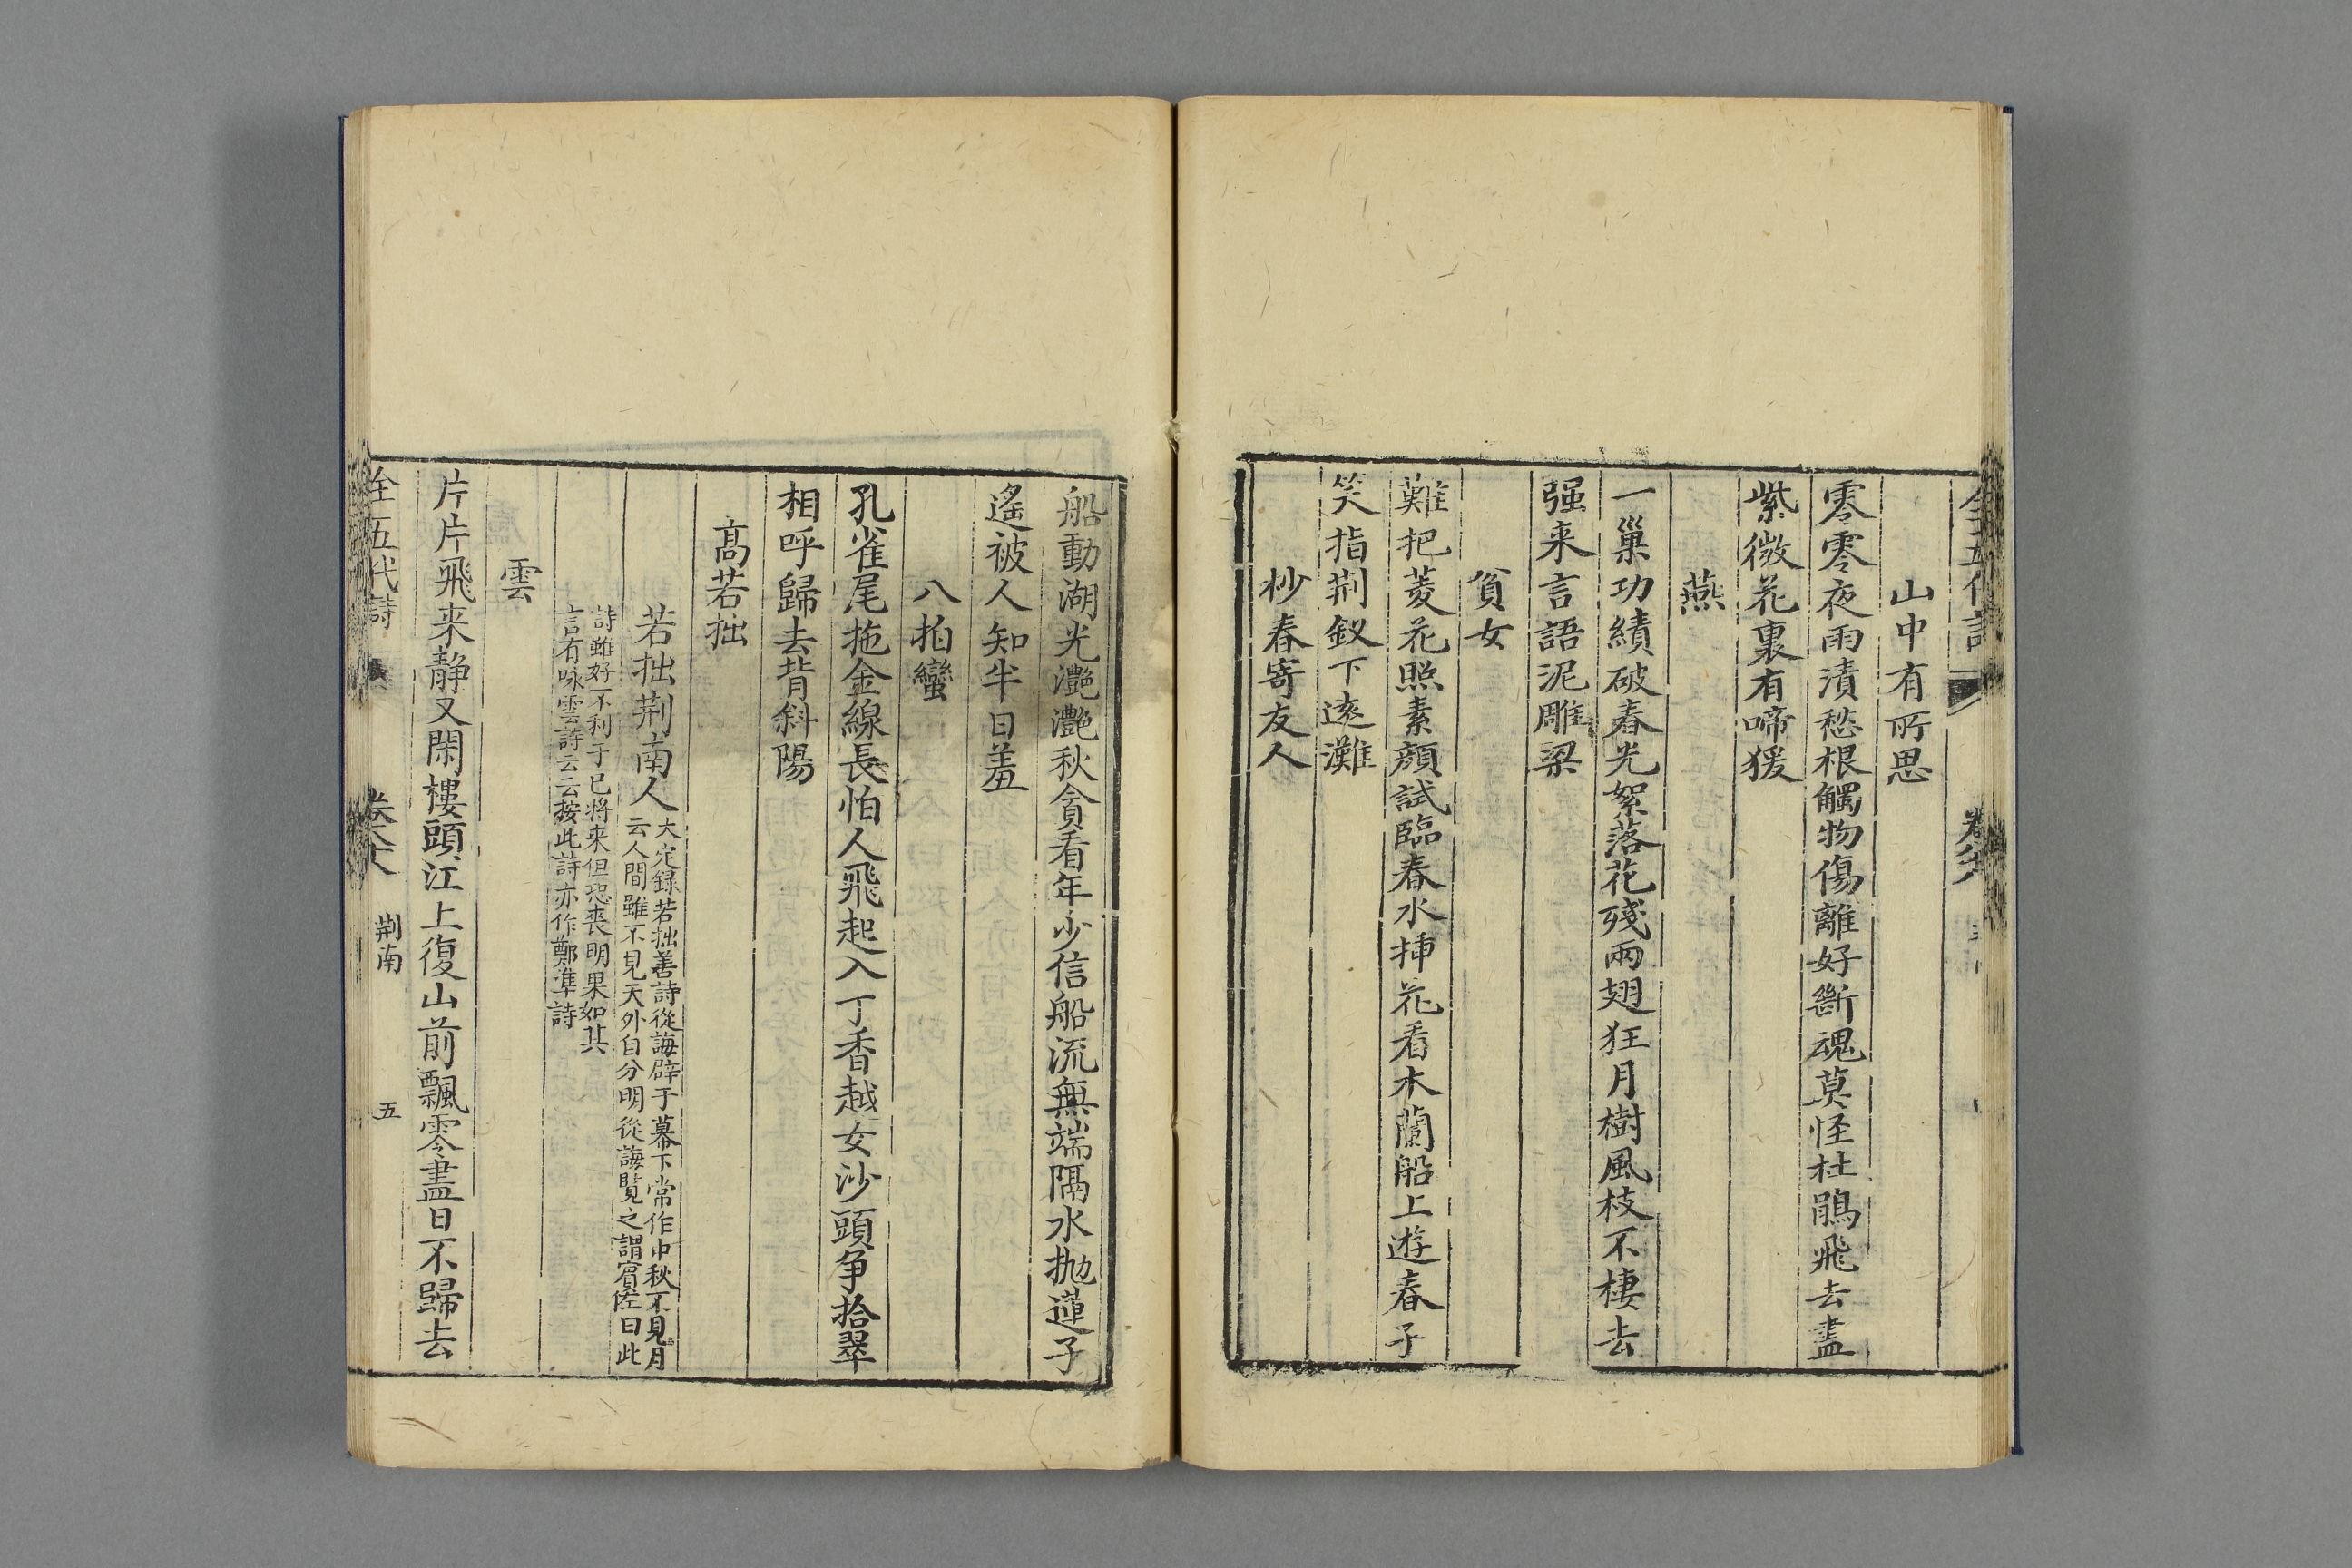 山中有所思
零零夜雨漬愁根觸物傷離好斷魂莫怪杜鵑飛去盡
紫微花裏有啼猨
燕
一巢功績破春光絮落花殘兩翅狂月樹風枝不棲去
强来言語泥雕梁
貧女
難把菱花照素顔試臨春水揷花看木蘭船上遊春子
笑指荆釵下遠灘
杪春寄友人
船動湖光灔灔秋貪看年少信船流無端隔水抛蓮子
遙被人知半日羞
八拍蠻
孔雀尾拖金線長怕人飛起入丁香越女沙頭争拾翠
相呼歸去背斜陽
髙若拙
若拙荆南人
大定録若拙善詩從誨辟于幕下常作中秋不見月
云人間雖不見天外自分明從誨覧之謂賓佐曰此
詩雖好不利于已將来但恐喪明果如其
言有咏雲詩云云按此詩亦作鄭準詩
雲
片片飛来静又閑樓頭江上復山前飄零盡日不歸去
全五代詩
荆南
五